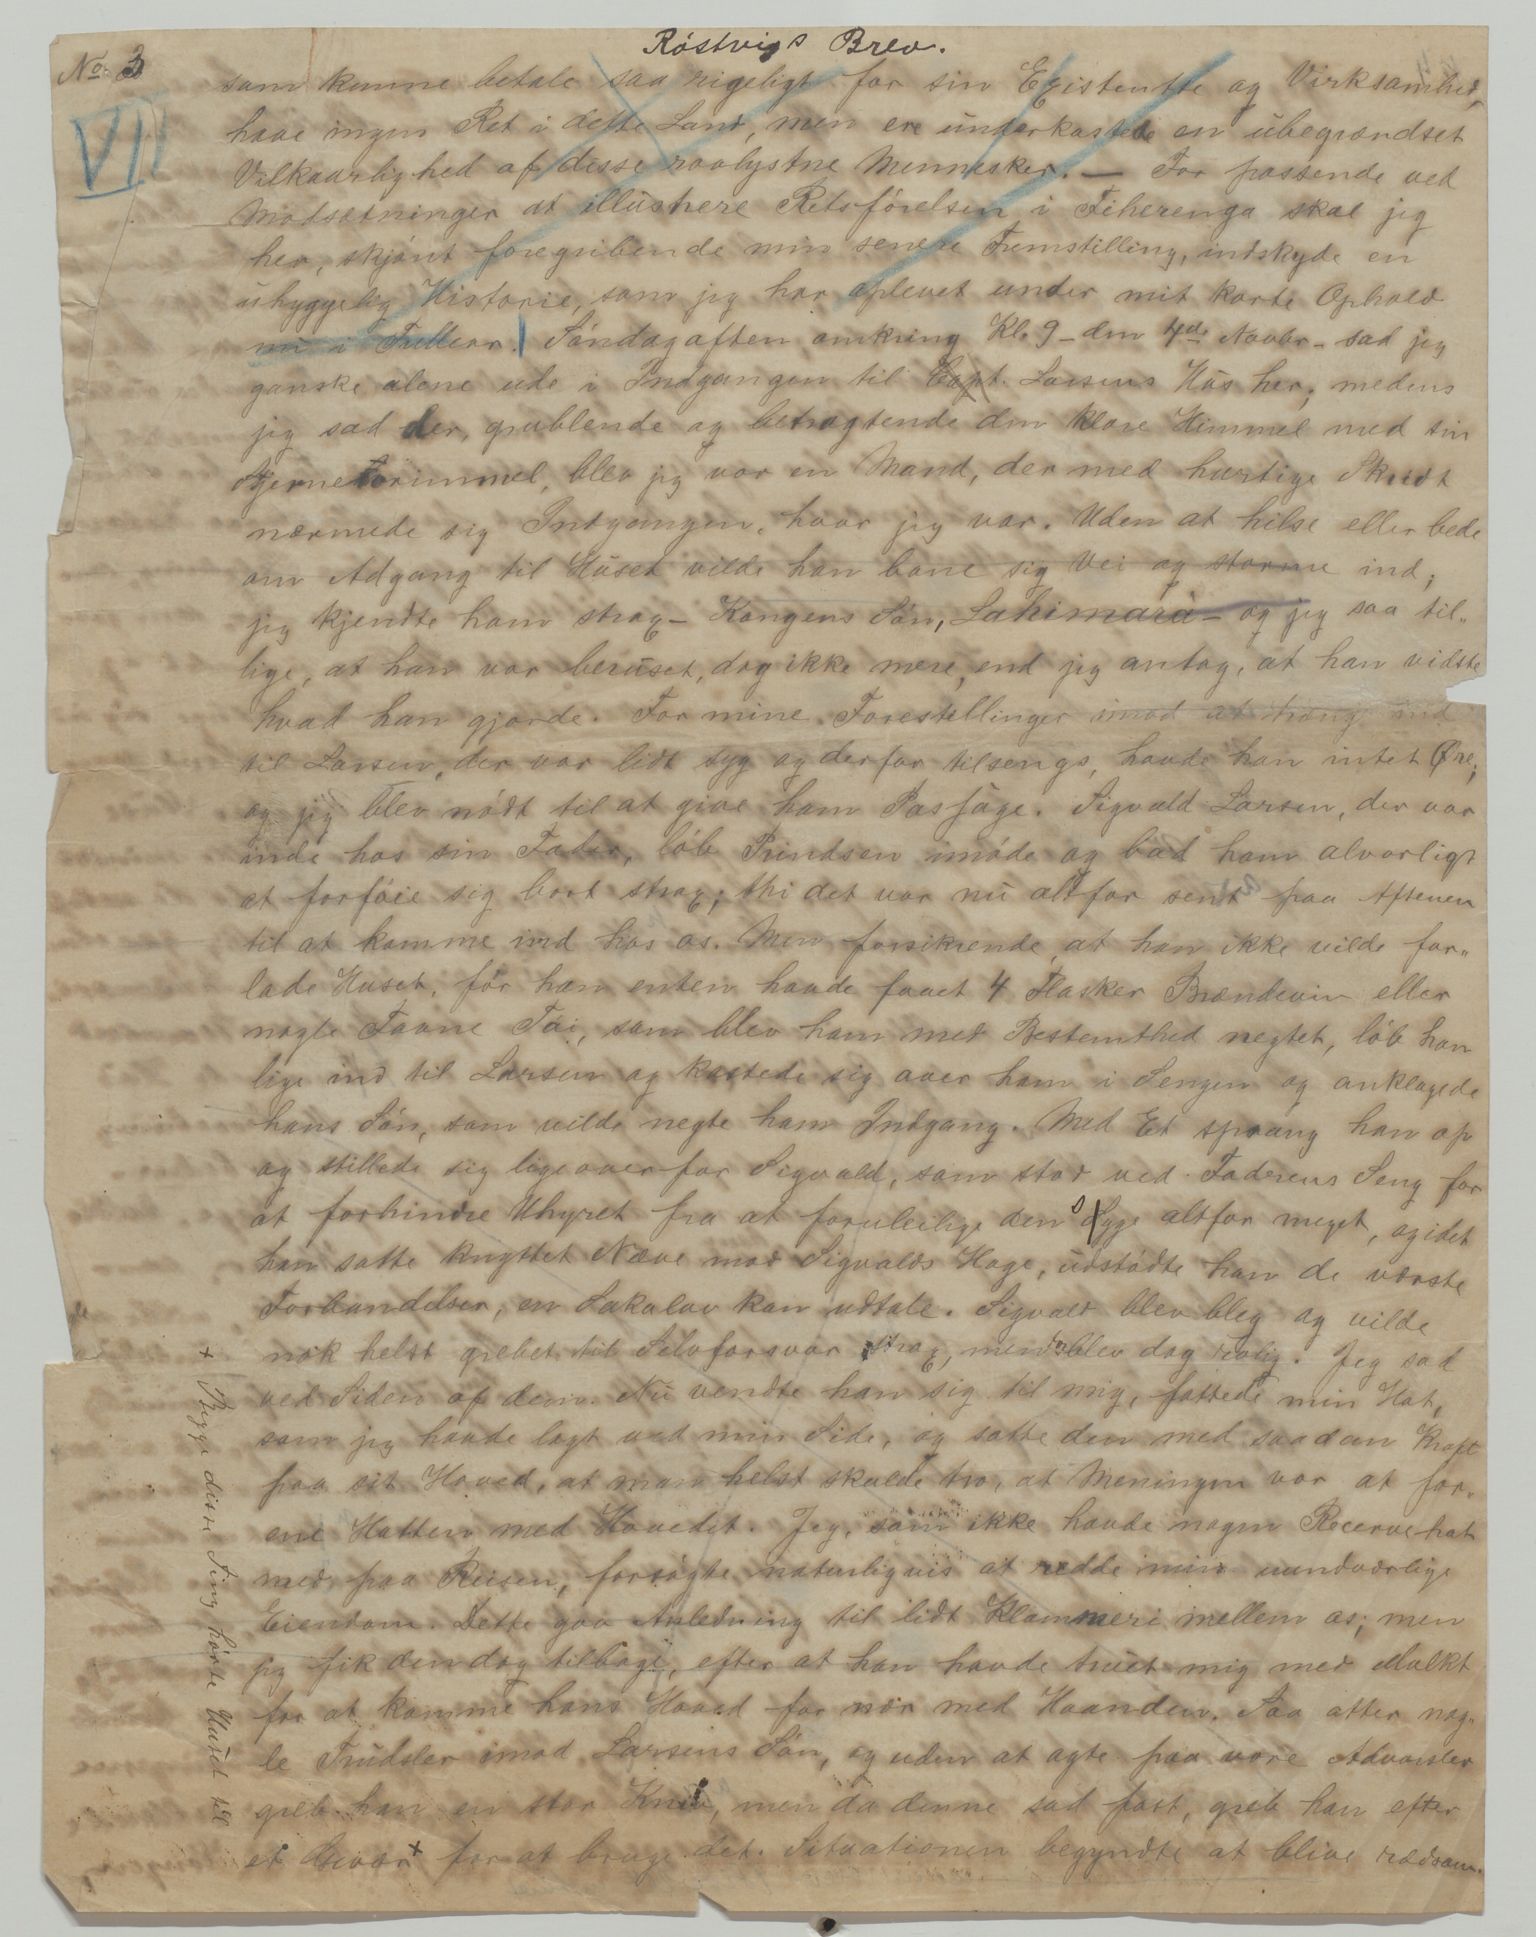 Röstvigs Brev.
No. 3
VII
som kunne betale saa rigeligt for sin Existentse og Virksomhed,
have ingen Ret i dette Land, men ere underkastede en ubegrændset
Vilkaarlighed af disse rovlystne Mennesker. — For passende ved
Modsætninger at illustrere Retsförelsen i Fiherenga skal jeg
her, skjönt foregribende min senere Fremstilling, indskyde en
uhyggelig Historie, som jeg har oplevet under mit korte Ophold
nu i Tullear. Söndagaften omkring Kl. 9 - den 4de Novbr - sad jeg
ganske alene ude i Indgangen til Capt. Larsens Hus her; medens
jeg sad der, grublende og betragtende den klare Himmel med sin
Stjernevrimmel, blev jeg var en Mand, der med hurtige Skridt
nærmede sig Indgangen, hvor jeg var. Uden at hilse eller bede
om Adgang til Huset vilde han bane sig Vei og storme ind;
jeg kjendte ham strax - Kongens Sön, Lahimara - og jeg saa til„
lige, at han var beruset, dog ikke mere, end jeg antog, at han vidste
hvad han gjorde. For mine Forestellinger imod at træng ind
til Larsen, der var lidt syg og derfor tilsengs, havde han intet Øre;
og jeg blev nödt til at give ham Passage. Sigvald Larsen, der var
inde hos sin Fader, löb Prindsen imöde og bad ham alvorligt
at forföie sig bort strax; thi det var nu altfor sent paa Aftenen
til at komme ind hos os. Men forsikrende, at han ikke vilde for„
lade Huset, för han enten havde faaet 4 Flasker Brændevin eller
nogle Favne Töi, som blev ham med Bestemthed negtet, löb han
lige ind til Larsen og kastede sig over ham i Sengen og anklagede
hans Sön, som vilde negte ham Indgang. Med Et sprang han op
og stillede sig ligeoverfor Sigvald, som stod ved Faderens Seng for
at forhindre Uhyret fra at foruleilige den Syge altfor meget, og idet
han satte knyttet Næve mod Sigvalds Hage, udstödte han de værste
Forbandelser, en Sakalav kan udtale. Sigvald blev bleg og vilde
nok helst grebet til Selvforsvar strax, men blev dog rolig. Jeg sad
ved Siden af dem. Nu vendte han sig til mig, fattede min Hat,
som jeg havde lagt ved min Side, og satte den med saadan Kraft
paa sit Hoved, at man helst skulde tro, at Meningen var at for„
ene Hatten med Hovedet. Jeg, som ikke havde nogen Reservehat
med paa Reisen, forsögte naturligvis at redde min uundværlige
Eiendom. Dette gav Anledning til lidt Klammeri mellem os; men
jeg fik den dog tilbage, efter at han havde truet mig med Mulkt
for at komme hans Hoved for nær med Haanden. Saa atter nog„
le Trudsler imod Larsens Sön, og uden at agte paa vore Advarsler
greb han en stor Kniv, men da denne sad fast, greb han efter
et Gevær x for at bruge det. Situationen begyndte at blive rædsom.
x Begge disse Ting hörte Huset til